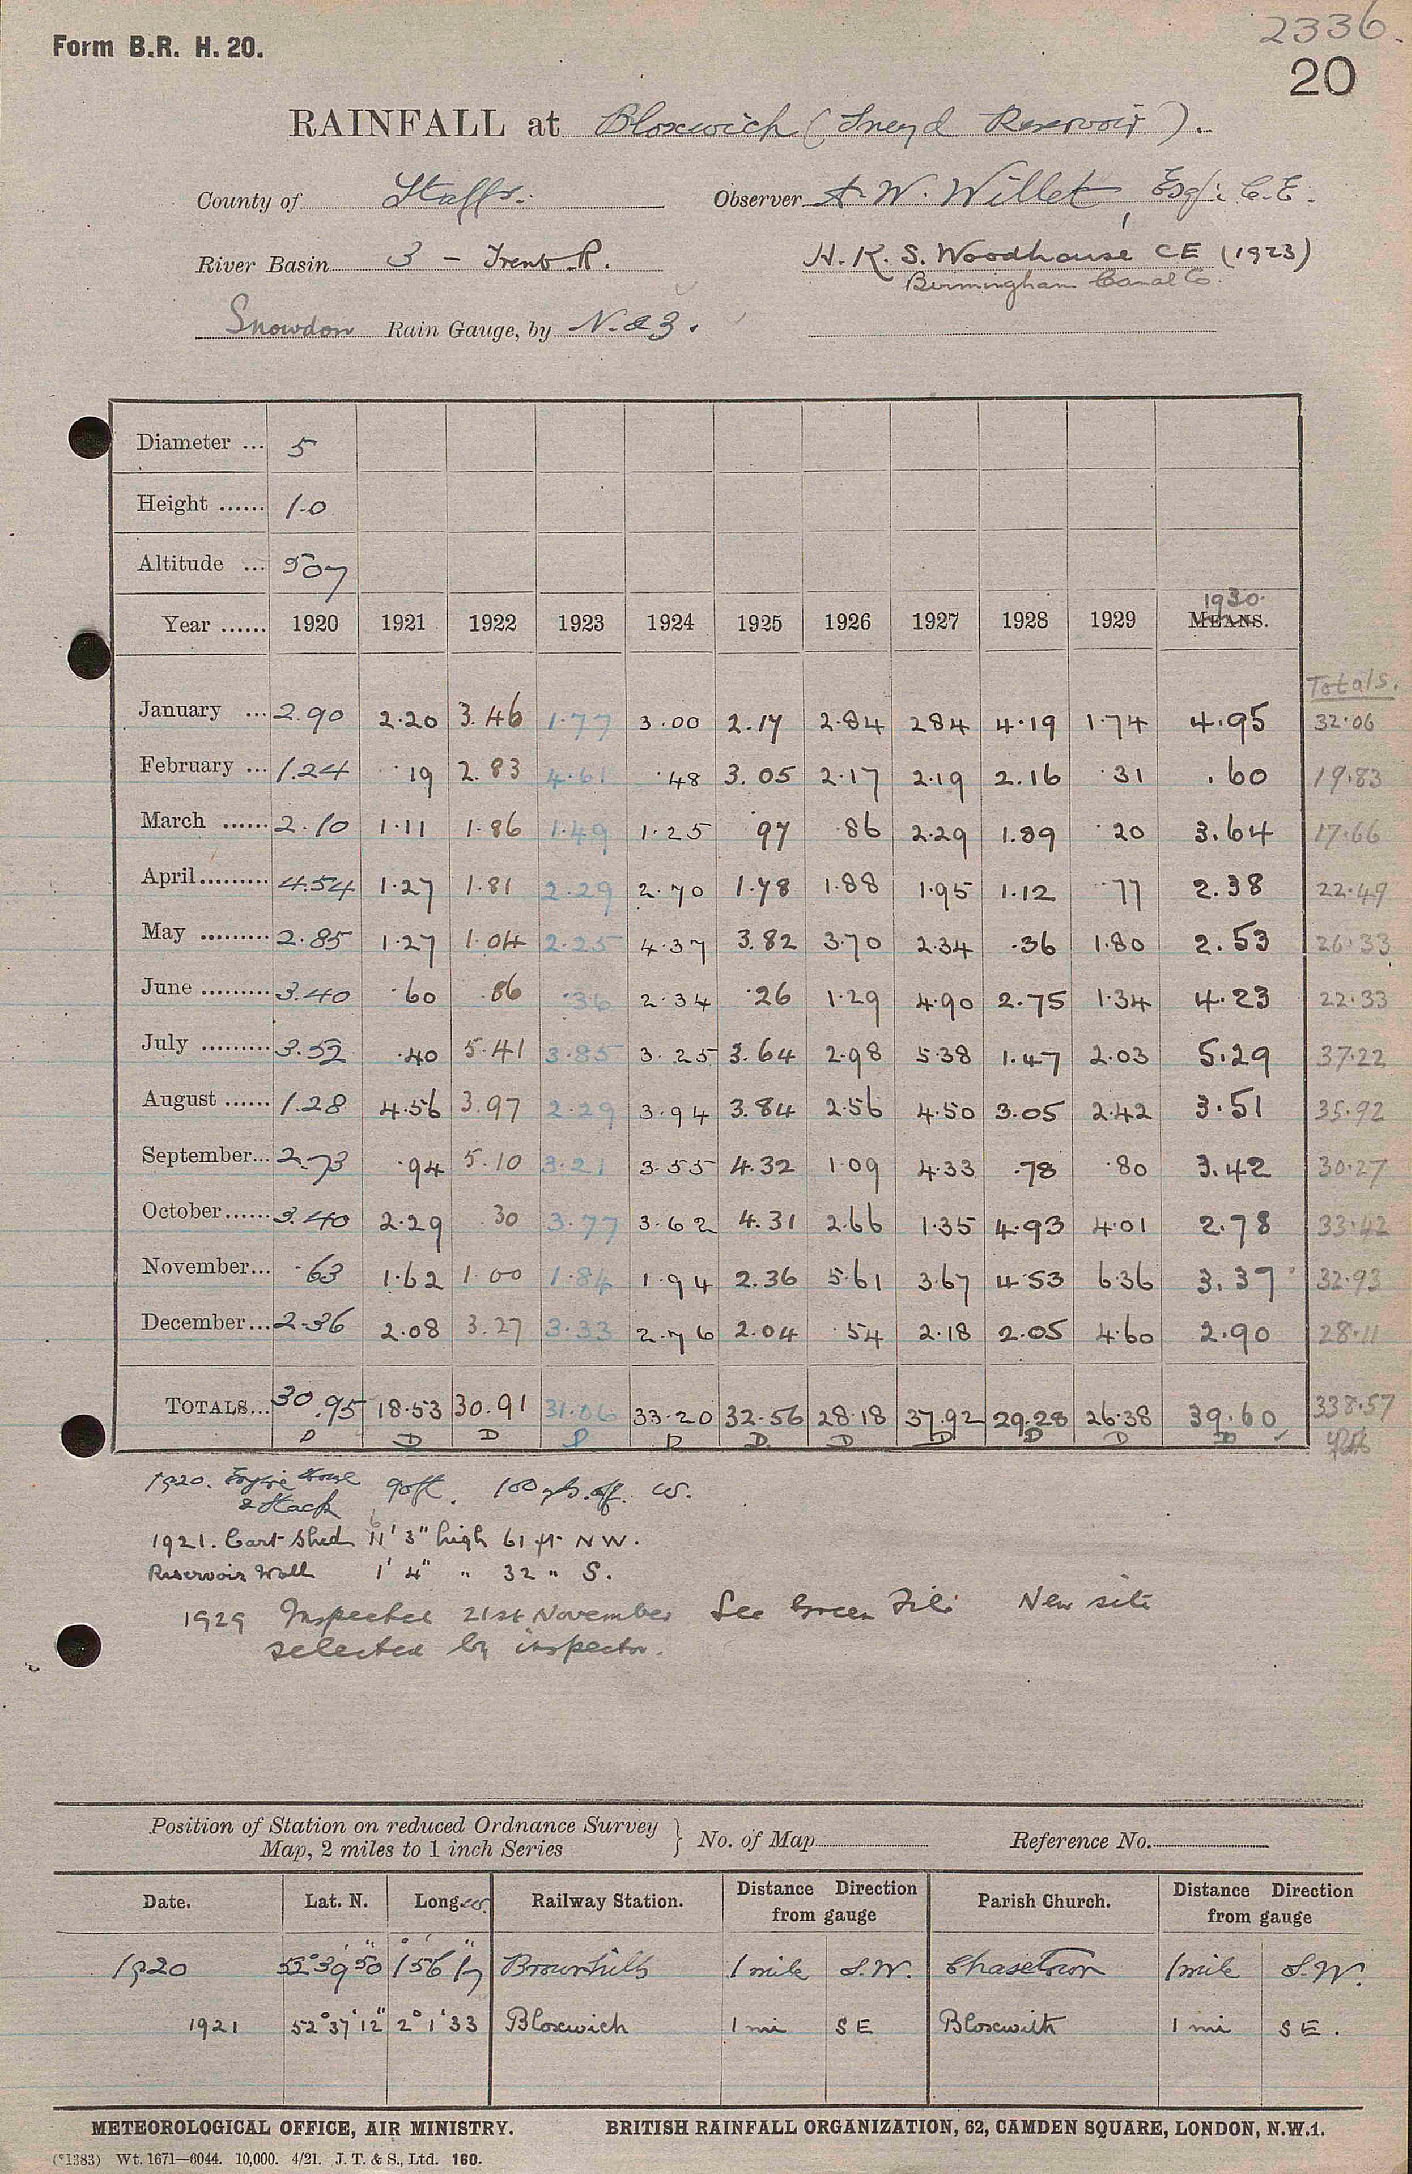 2336.
Form B.R. H. 20.
20
RAINFALL at Bloxwich (Sneyd Reservoir).
County of Staffs. Observer A. W. Willet, Esq: C.E.
River Basin 3 - Trent R. H. K. S. Woodhouse CE (1923)
Birmingham Canal Co.
Snowdon Rain Gauge, by N. & Z.
Diameter ... 5
Height ...... 1.0
Altitude ... 507
1930.
Year ...... 1920 1921 1922 1923 1924 1925 1926 1927 1928 1929 MEANS.
Totals.
January ... 2.90 2.20 3.46 1.77 3.00 2.17 2.84 2.84 4.19 1.74 4.95 32.06
February ... 1.24 .19 2.83 4.61 .48 3.05 2.17 2.19 2.16 .31 .60 19.83
March ...... 2.10 1.11 1.86 1.49 1.25 .97 .86 2.29 1.89 .20 3.64 17.66
April ......... 4.54 1.27 1.81 2.29 2.70 1.78 1.88 1.95 1.12 .77 2.38 22.49
May ......... 2.85 1.27 1.04 2.25 4.37 3.82 3.70 2.34 .36 1.80 2.53 26.33
June ......... 3.40 .60 .86 .36 2.34 .26 1.29 4.90 2.75 1.34 4.23 22.33
July ......... 3.52 .40 5.41 3.85 3.25 3.64 2.98 5.38 1.47 2.03 5.29 37.22
August ...... 1.28 4.56 3.97 2.29 3.94 3.84 2.56 4.50 3.05 2.42 3.51 35.92
September... 2.73 .94 5.10 3.21 3.55 4.32 1.09 4.33 .78 .80 3.42 30.27
October ...... 3.40 2.29 .30 3.77 3.62 4.31 2.66 1.35 4.93 4.01 2.78 33.42
November... .63 1.62 1.00 1.84 1.94 2.36 5.61 3.67 4.53 6.36 3.37 32.93
December... 2.36 2.08 3.27 3.33 2.76 2.04 .54 2.18 2.05 4.60 2.90 28.11
TOTALS... 30.95 18.53 30.91 31.06 33.20 32.56 28.18 37.92 29.28 26.38 39.60 338.57
D D D D D D D D D D D
1920. Engine House 90ft. 100 yds. off. W.
& Stack
1921. Cart Shed 11' 3" high 61 ft NW.
Reservoir Wall 1' 4" " 32 " S.
1929 Inspected 21st November See Green File New site
selected by inspector.
Position of Station on reduced Ordnance Survey
Map, 2 miles to 1 inch Series } No. of Map Reference No.
Date. Lat. N. Long. W. Railway Station. Distance Direction from gauge Parish Church. Distance Direction from gauge
1920 52° 39' 50" 1° 56' 17" Brownhills 1 mile S.W. Chasetown 1 mile S.W.
1921 52° 37' 12" 2° 1' 33 Bloxwich 1 mi SE Bloxwich 1 mi SE.
METEOROLOGICAL OFFICE, AIR MINISTRY. BRITISH RAINFALL ORGANIZATION, 62, CAMDEN SQUARE, LONDON, N.W.1.
(*1383) Wt. 1671—6044. 10,000. 4/21. J. T. & S., Ltd. 160.